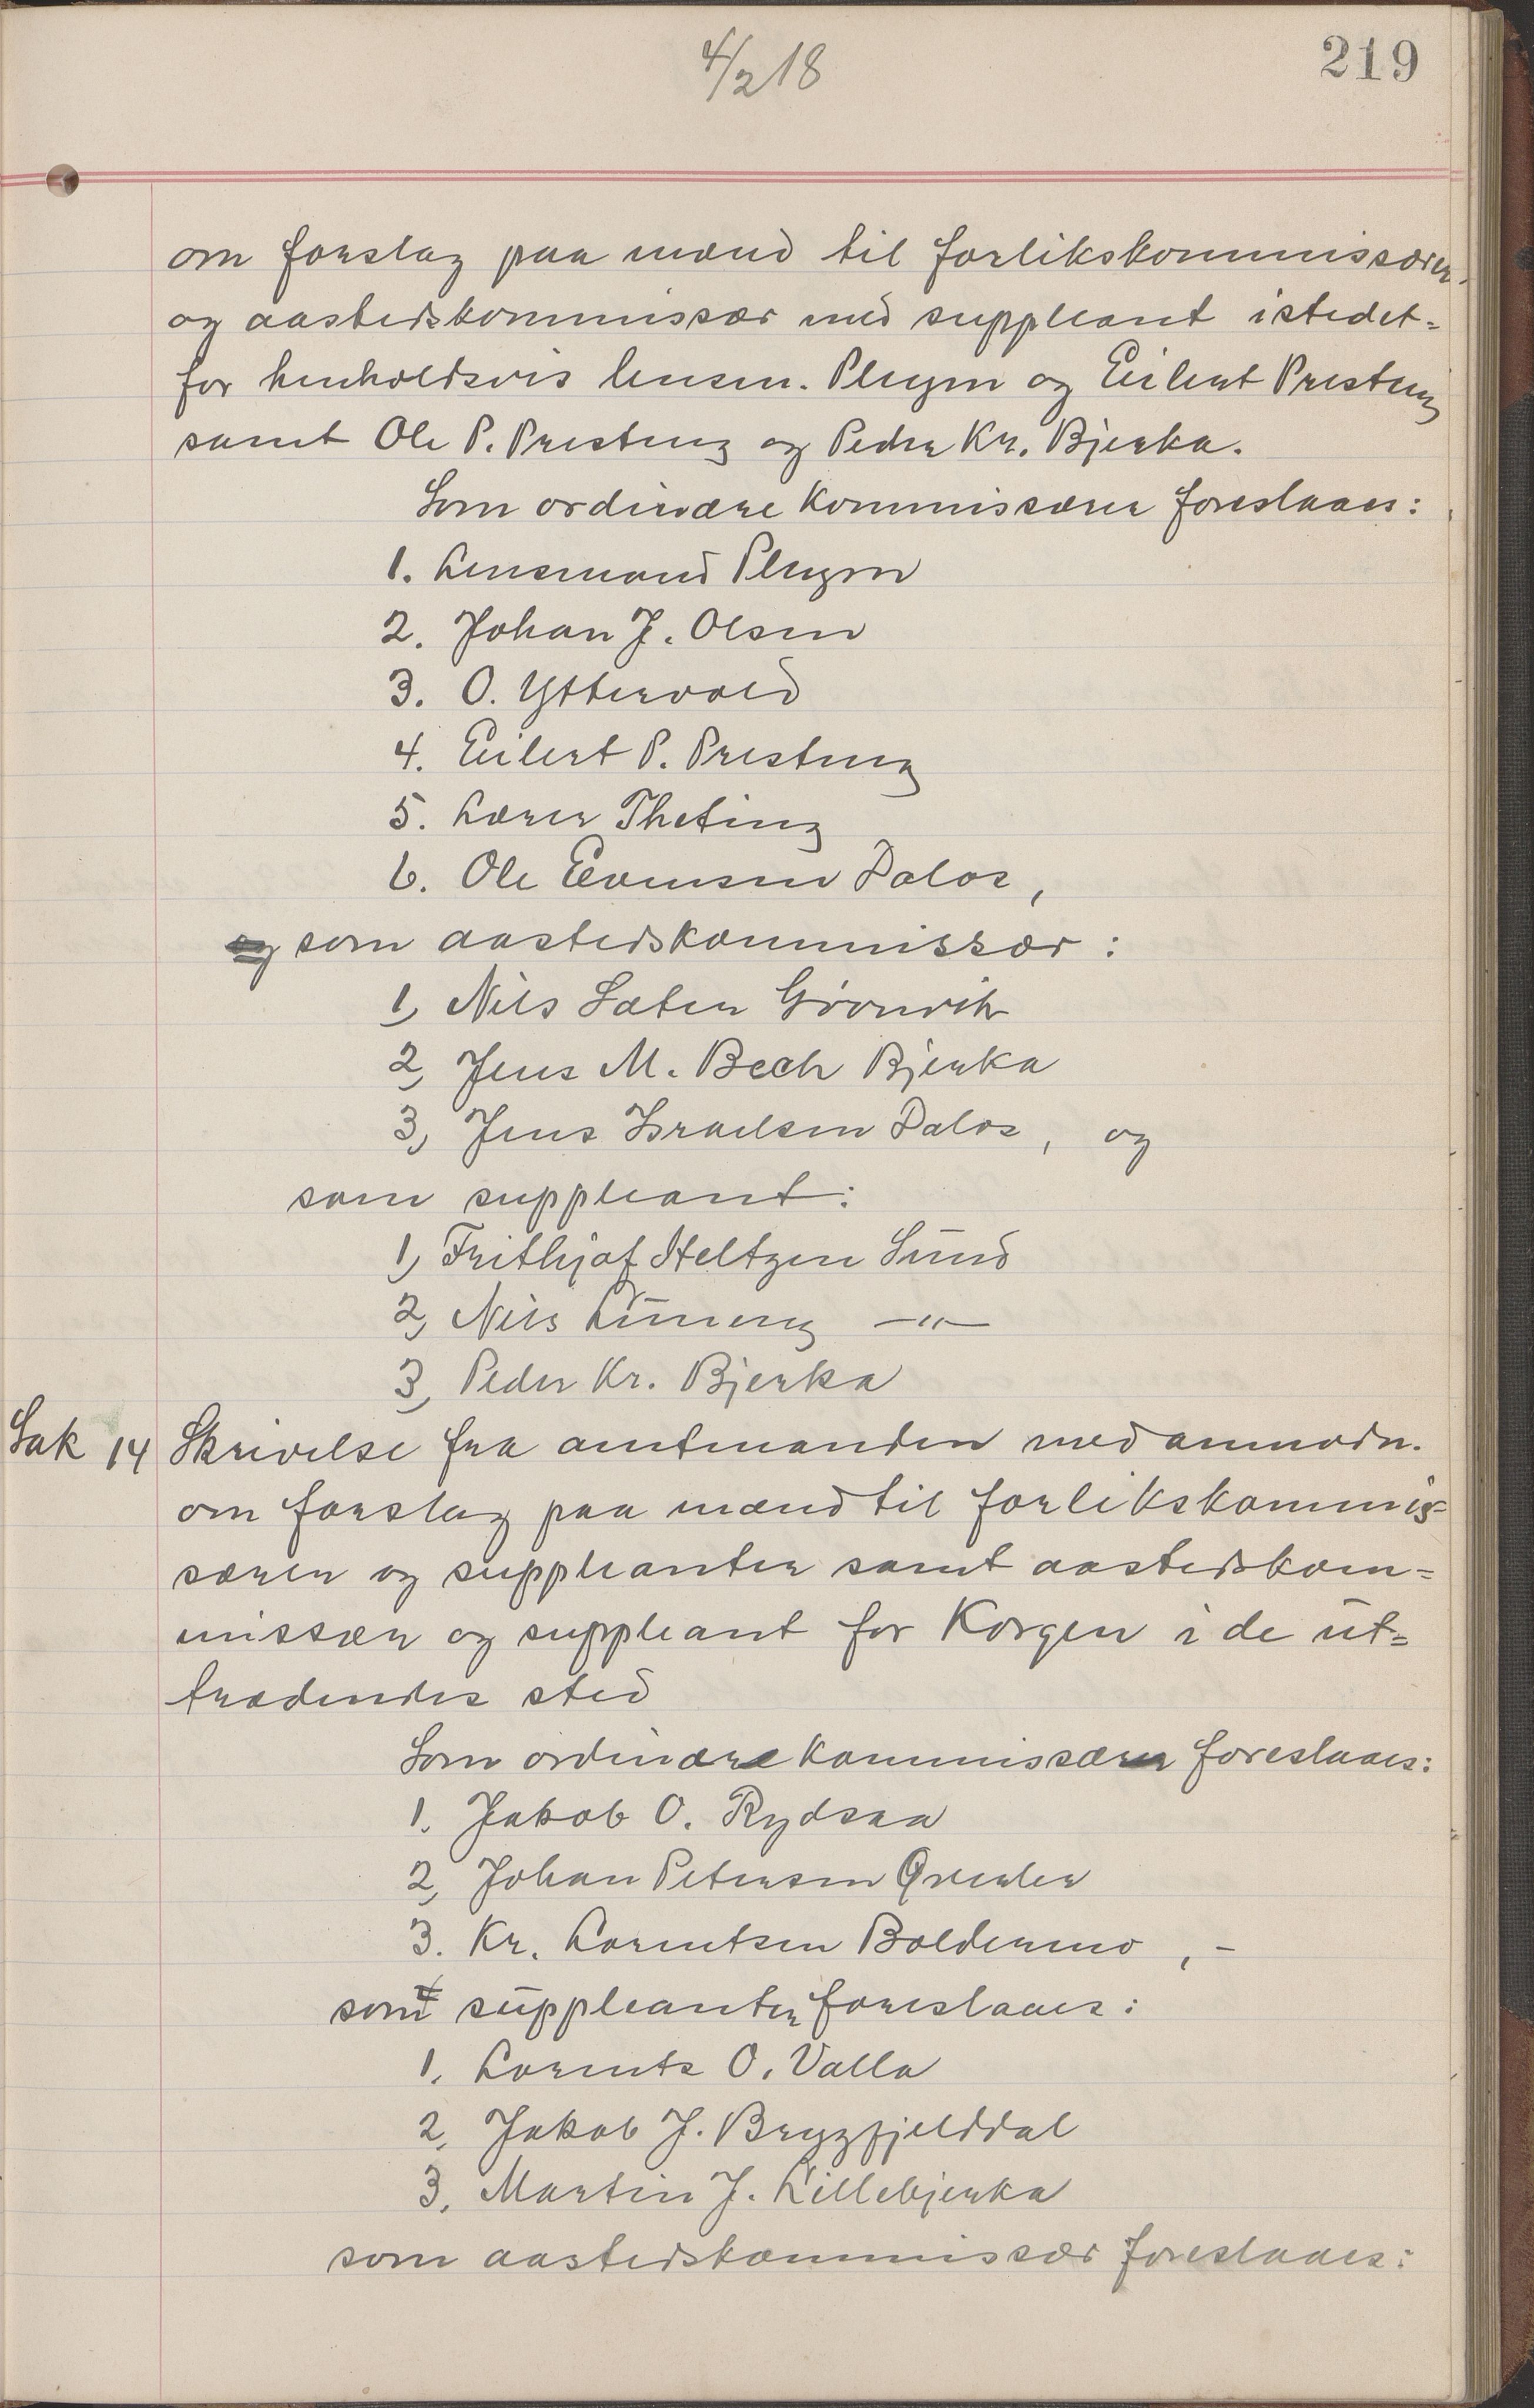 4/2 18
219
om forslag paa mænd til forlikskommissærer
og aastedskommissær med suppleant istedet=
for henholdsvis lensm. Plygm og Eilert Presteng
samt Ole P. Presteng og Peder Kr. Bjerka.
Som ordinære kommissærer foreslaaes:
1. Lensmand Plygm
2. Johan J. Olsen
3. O. Yttervold
4. Eilert P. Presteng
5. Lærer Theting
6. Ole Evensen Dalos,
og som aastedskommissær:
1, Nils Sæter Grovnvik
2, Jens M. Bech Bjerka
3, Jens Israelsen Dalos, og
som suppleant:
1, Frithjof Heltzen Sund
2, Nils Lüneng —"—
3, Peder Kr. Bjerka
Sak 14 Skrivelse fra amtmanden med anmodn.
om forslag paa mænd til forlikskommis=
særer og suppleanter samt aastedskom=
missær og suppleant for Korgen i de ut=
trædendes sted
Som ordinære kommissærer foreslaaes:
1. Jakob O. Rydsaa
2, Johan Petersen Qverler
3. Kr. Lorentsen Boldermo,-
som suppleanter foreslaaes:
1. Lorents O. Valla
2, Jakob J. Bryggfjelddal
3, Martin J. Lillebjerka
som aastedskommissær foreslaaes: